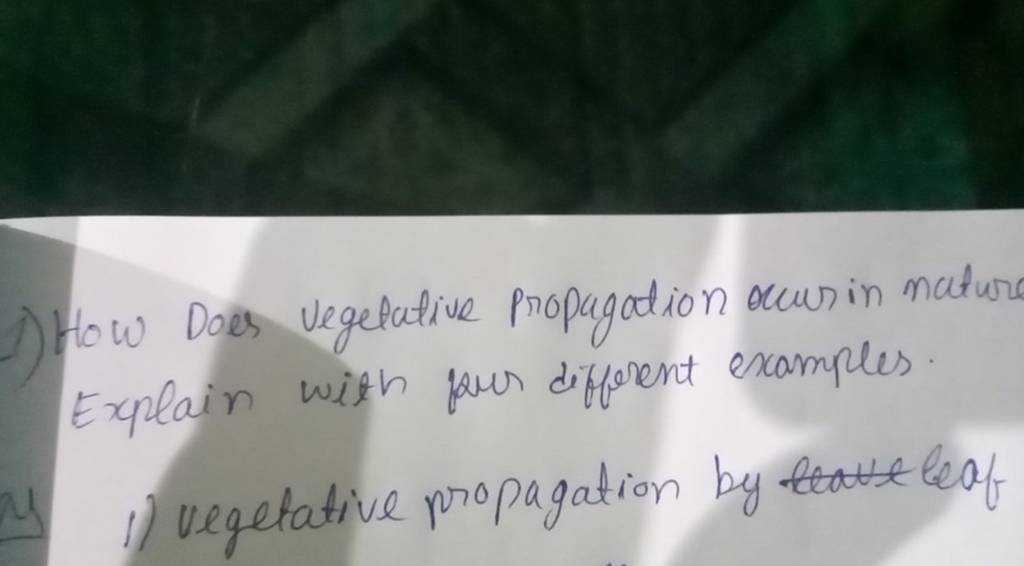 1) How Does vegetative propagation occur in nature
Explain with four different examples.
1) vegetative propagation by leaf